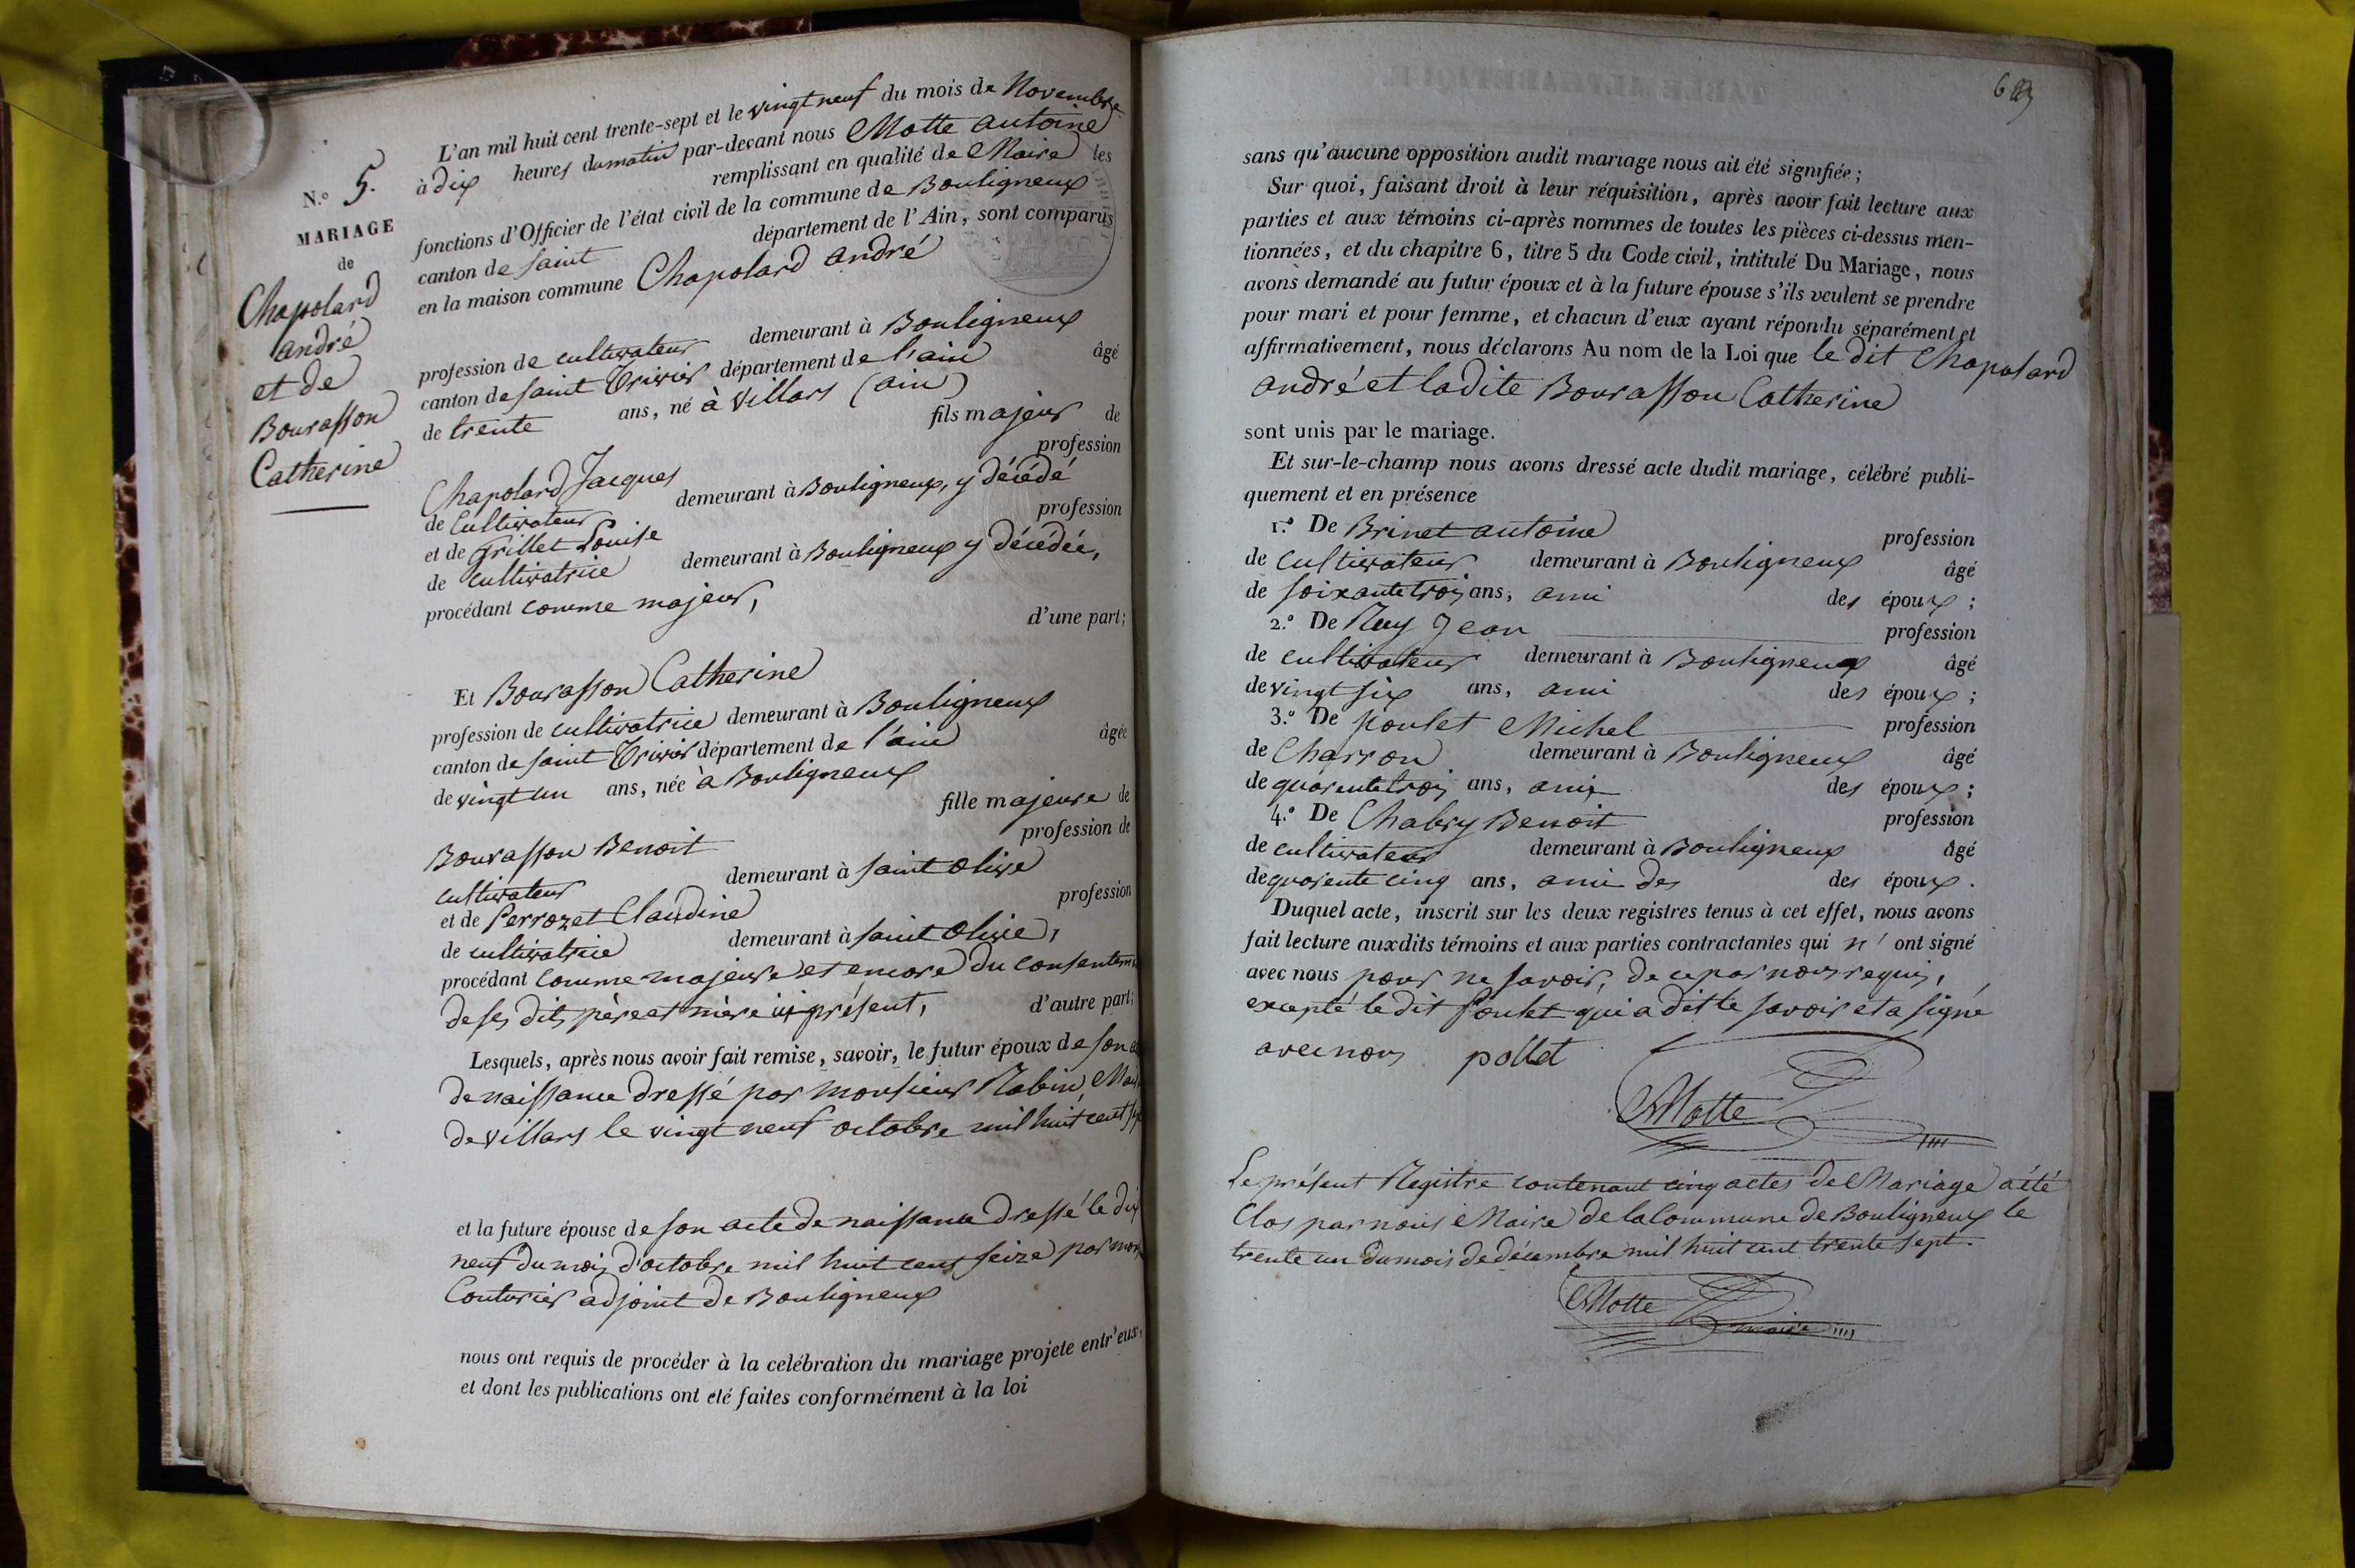 N.º 5.
MARIAGE
de
Chapolard
andré
et de
Bourasson
Catherine
L'an mil huit cent trente-sept et le vingt neuf du mois de Novembre
à dix heures du matin par-devant nous Motte antoine
remplissant en qualité de Maire les
fonctions d'Officier de l'état civil de la commune de Bouligneux
canton de saint département de l'Ain, sont comparus
en la maison commune Chapolard andré
profession de cultivateur demeurant à Bouligneux
canton de saint Trivier département de l'ain âgé
de trente ans, né à Villars (ain)
fils majeur de
Chapolard Jacques profession
de Cultivateur demeurant à Bouligneux, y décédé
et de Grillet Louise profession
de cultivatrice demeurant à Bouligneux y décédée,
procédant comme majeur,
d'une part;
Et Bourasson Catherine
profession de cultivatrice demeurant à Bouligneux
canton de saint Trivier département de l'ain âgée
de vingt un ans, née à Bouligneux
fille majeure de
Bourasson Benoit profession de
cultivateur demeurant à saint Olive
et de Perrozet Claudine profession
de cultivatrice demeurant à saint Olive,
procédant comme majeure et encore du consentem
de ses dits père et mère ici présent, d'autre part;
Lesquels, après nous avoir fait remise, savoir, le futur époux de son
de naissance dressé par monsieur Rabin,
de villars le vingt neuf octobre mil huit cent
et la future épouse de son acte de naissance dressé le dix
neuf du mois d'octobre mil huit cent seize par
Couturier adjoint de Bouligneux
nous ont requis de procéder à la celébration du mariage projete entr'eux,
et dont les publications ont été faites conformément à la loi
sans qu'aucune opposition audit mariage nous ait été signifiée;
Sur quoi, faisant droit à leur réquisition, après avoir fait lecture aux
parties et aux témoins ci-après nommes de toutes les pièces ci-dessus men-
tionnées, et du chapitre 6, titre 5 du Code civil, intitulé Du Mariage, nous
avons demandé au futur époux et à la future épouse s'ils veulent se prendre
pour mari et pour femme, et chacun d'eux ayant répondu séparément et
affirmativement, nous déclarons Au nom de la Loi que le dit Chapolard
andré et ladite Bourasson Catherine
sont unis par le mariage.
Et sur-le-champ nous avons dressé acte dudit mariage, célébré publi-
quement et en présence
1.º De Brinet antoine profession
de cultivateur demeurant à Bouligneux âgé
de soixante trois ans, ami des époux;
2.º De Ruy Jean profession
de cultivateur demeurant à Bouligneux âgé
de vingt six ans, ami des époux;
3.º De poulet Michel profession
de Charron demeurant à Bouligneux âgé
de quarente trois ans, ami des époux;
4.º De Chabry Benoit profession
de cultivateur demeurant à Bouligneux âgé
de quarente cinq ans, ami des des époux.
Duquel acte, inscrit sur les deux registres tenus à cet effet, nous avons
fait lecture auxdits témoins et aux parties contractantes qui n' ont signé
avec nous pour ne savoir, de ce par nous requis,
excepté le dit Poulet qui a dit le savoir et a signé
avec nous pollet
Motte
Le présent Registre contenant cinq actes de Mariage a été
Clos par nous Maire de la Commune de Bouligneux le
trente un du mois de décembre mil huit cent trente sept.
Motte
maire